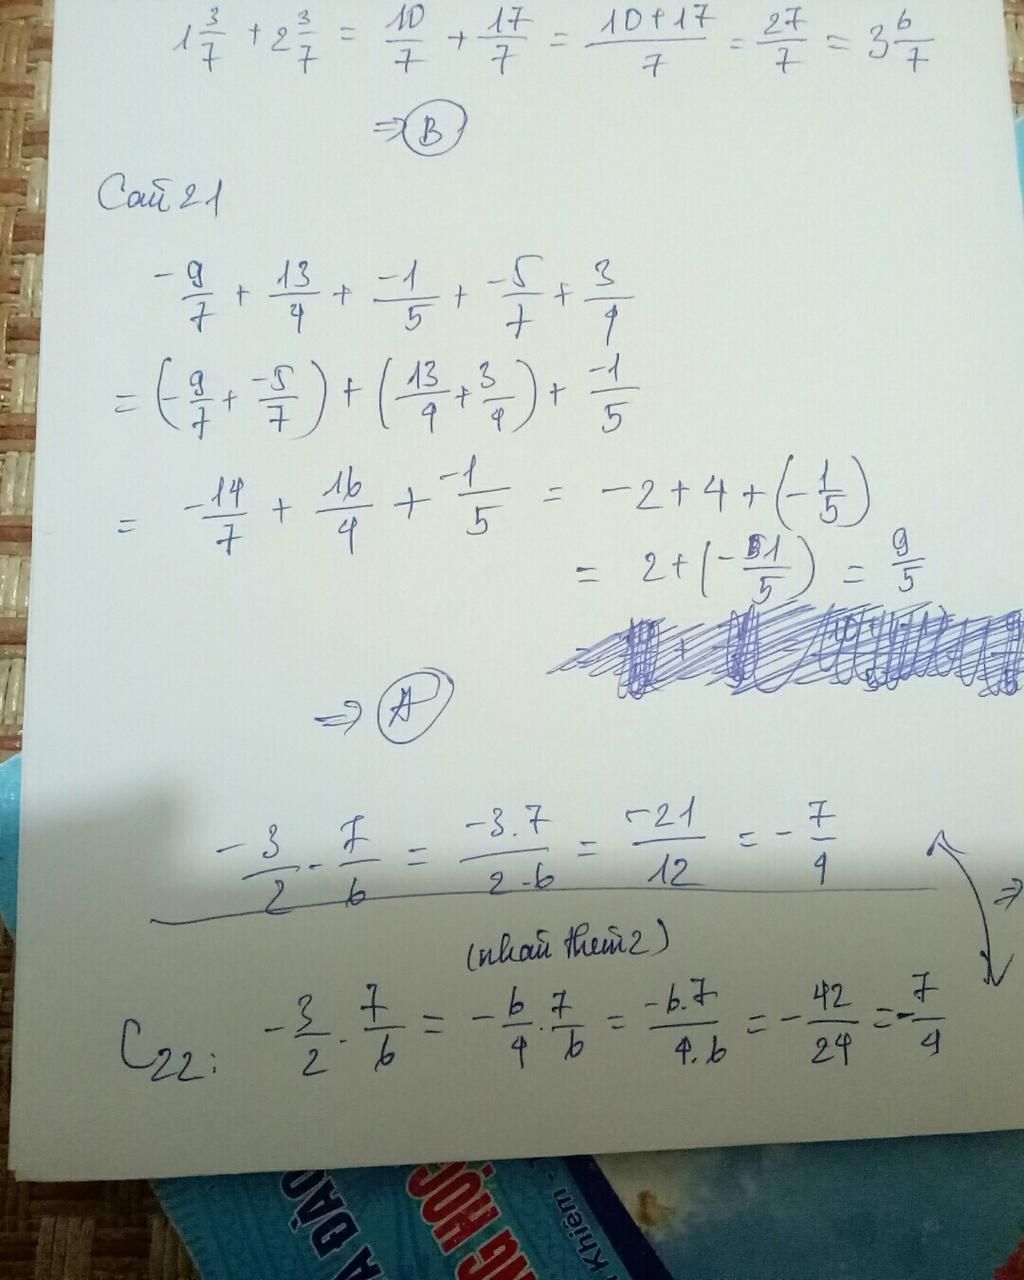 1 3/7 + 2 3/7 = 10/7 + 17/7 = 10+17/7 = 27/7 = 3 6/7
⇒ B
Câu 21
-9/7 + 13/4 + -1/5 + -5/7 + 3/4
= (-9/7 + -5/7) + (13/4 + 3/4) + -1/5
= -14/7 + 16/4 + -1/5 = -2 + 4 + (-1/5)
= 2 + (-1/5) = 9/5
⇒ A
-3/2 . 7/6 = -3.7/2.6 = -21/12 = -7/4
⇒
(nhân thêm 2)
C22: -3/2 . 7/6 = -6/4 . 7/6 = -6.7/4.6 = -42/24 = -7/4
A ĐÀO
NG HỌC
Khiêm -